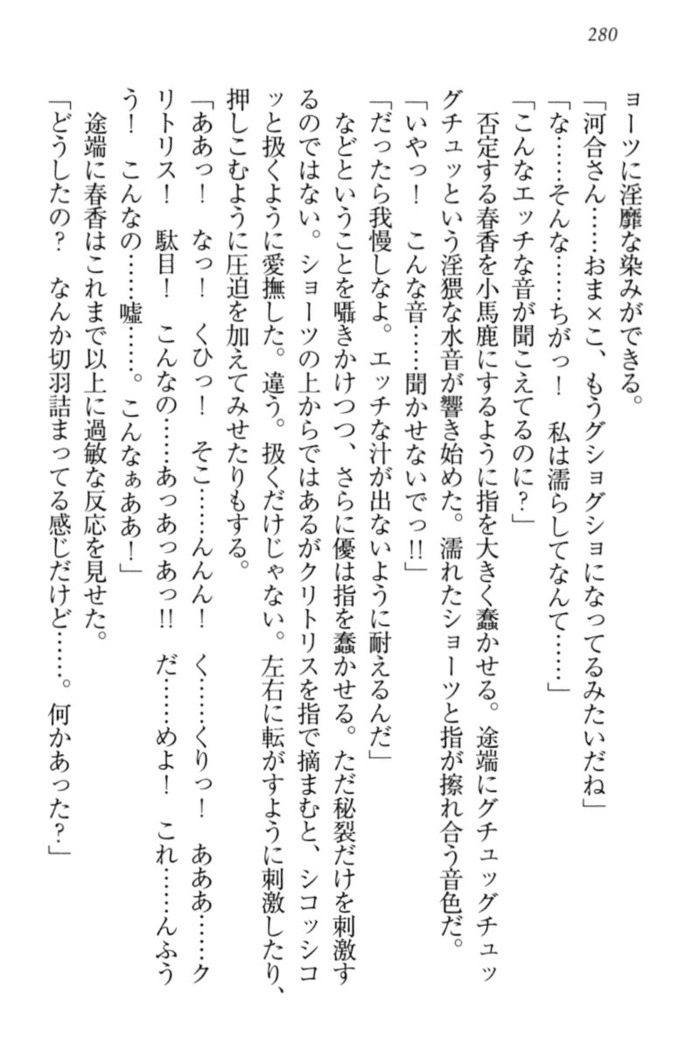 280
ョーツに淫靡な染みができる。
「河合さん……おま×こ、もうグショグショになってるみたいだね」
「な……そんな……ちがっ！　私は濡らしてなんて……」
「こんなエッチな音が聞こえてるのに？」
　否定する春香を小馬鹿にするように指を大きく蠢かせる。途端にグチュッグチュッ
グチュッという淫猥な水音が響き始めた。濡れたショーツと指が擦れ合う音色だ。
「いやっ！　こんな音……聞かせないでっ!!」
「だったら我慢しなよ。エッチな汁が出ないように耐えるんだ」
　などということを囁きかけつつ、さらに優は指を蠢かせる。ただ秘裂だけを刺激す
るのではない。ショーツの上からではあるがクリトリスを指で摘まむと、シコッシコ
ッと扱くように愛撫した。違う。扱くだけじゃない。左右に転がすように刺激したり、
押しこむように圧迫を加えてみせたりもする。
「ああっ！　なっ！　くひっ！　そこ……んんん！　く……くりっ！　あああ……ク
リトリス！　駄目！　こんなの……あっあっあっ!!　だ……めよ！　これ……んふう
う！　こんなの……嘘……。こんなぁああ！」
　途端に春香はこれまで以上に過敏な反応を見せた。
「どうしたの？　なんか切羽詰まってる感じだけど……。何かあった？」